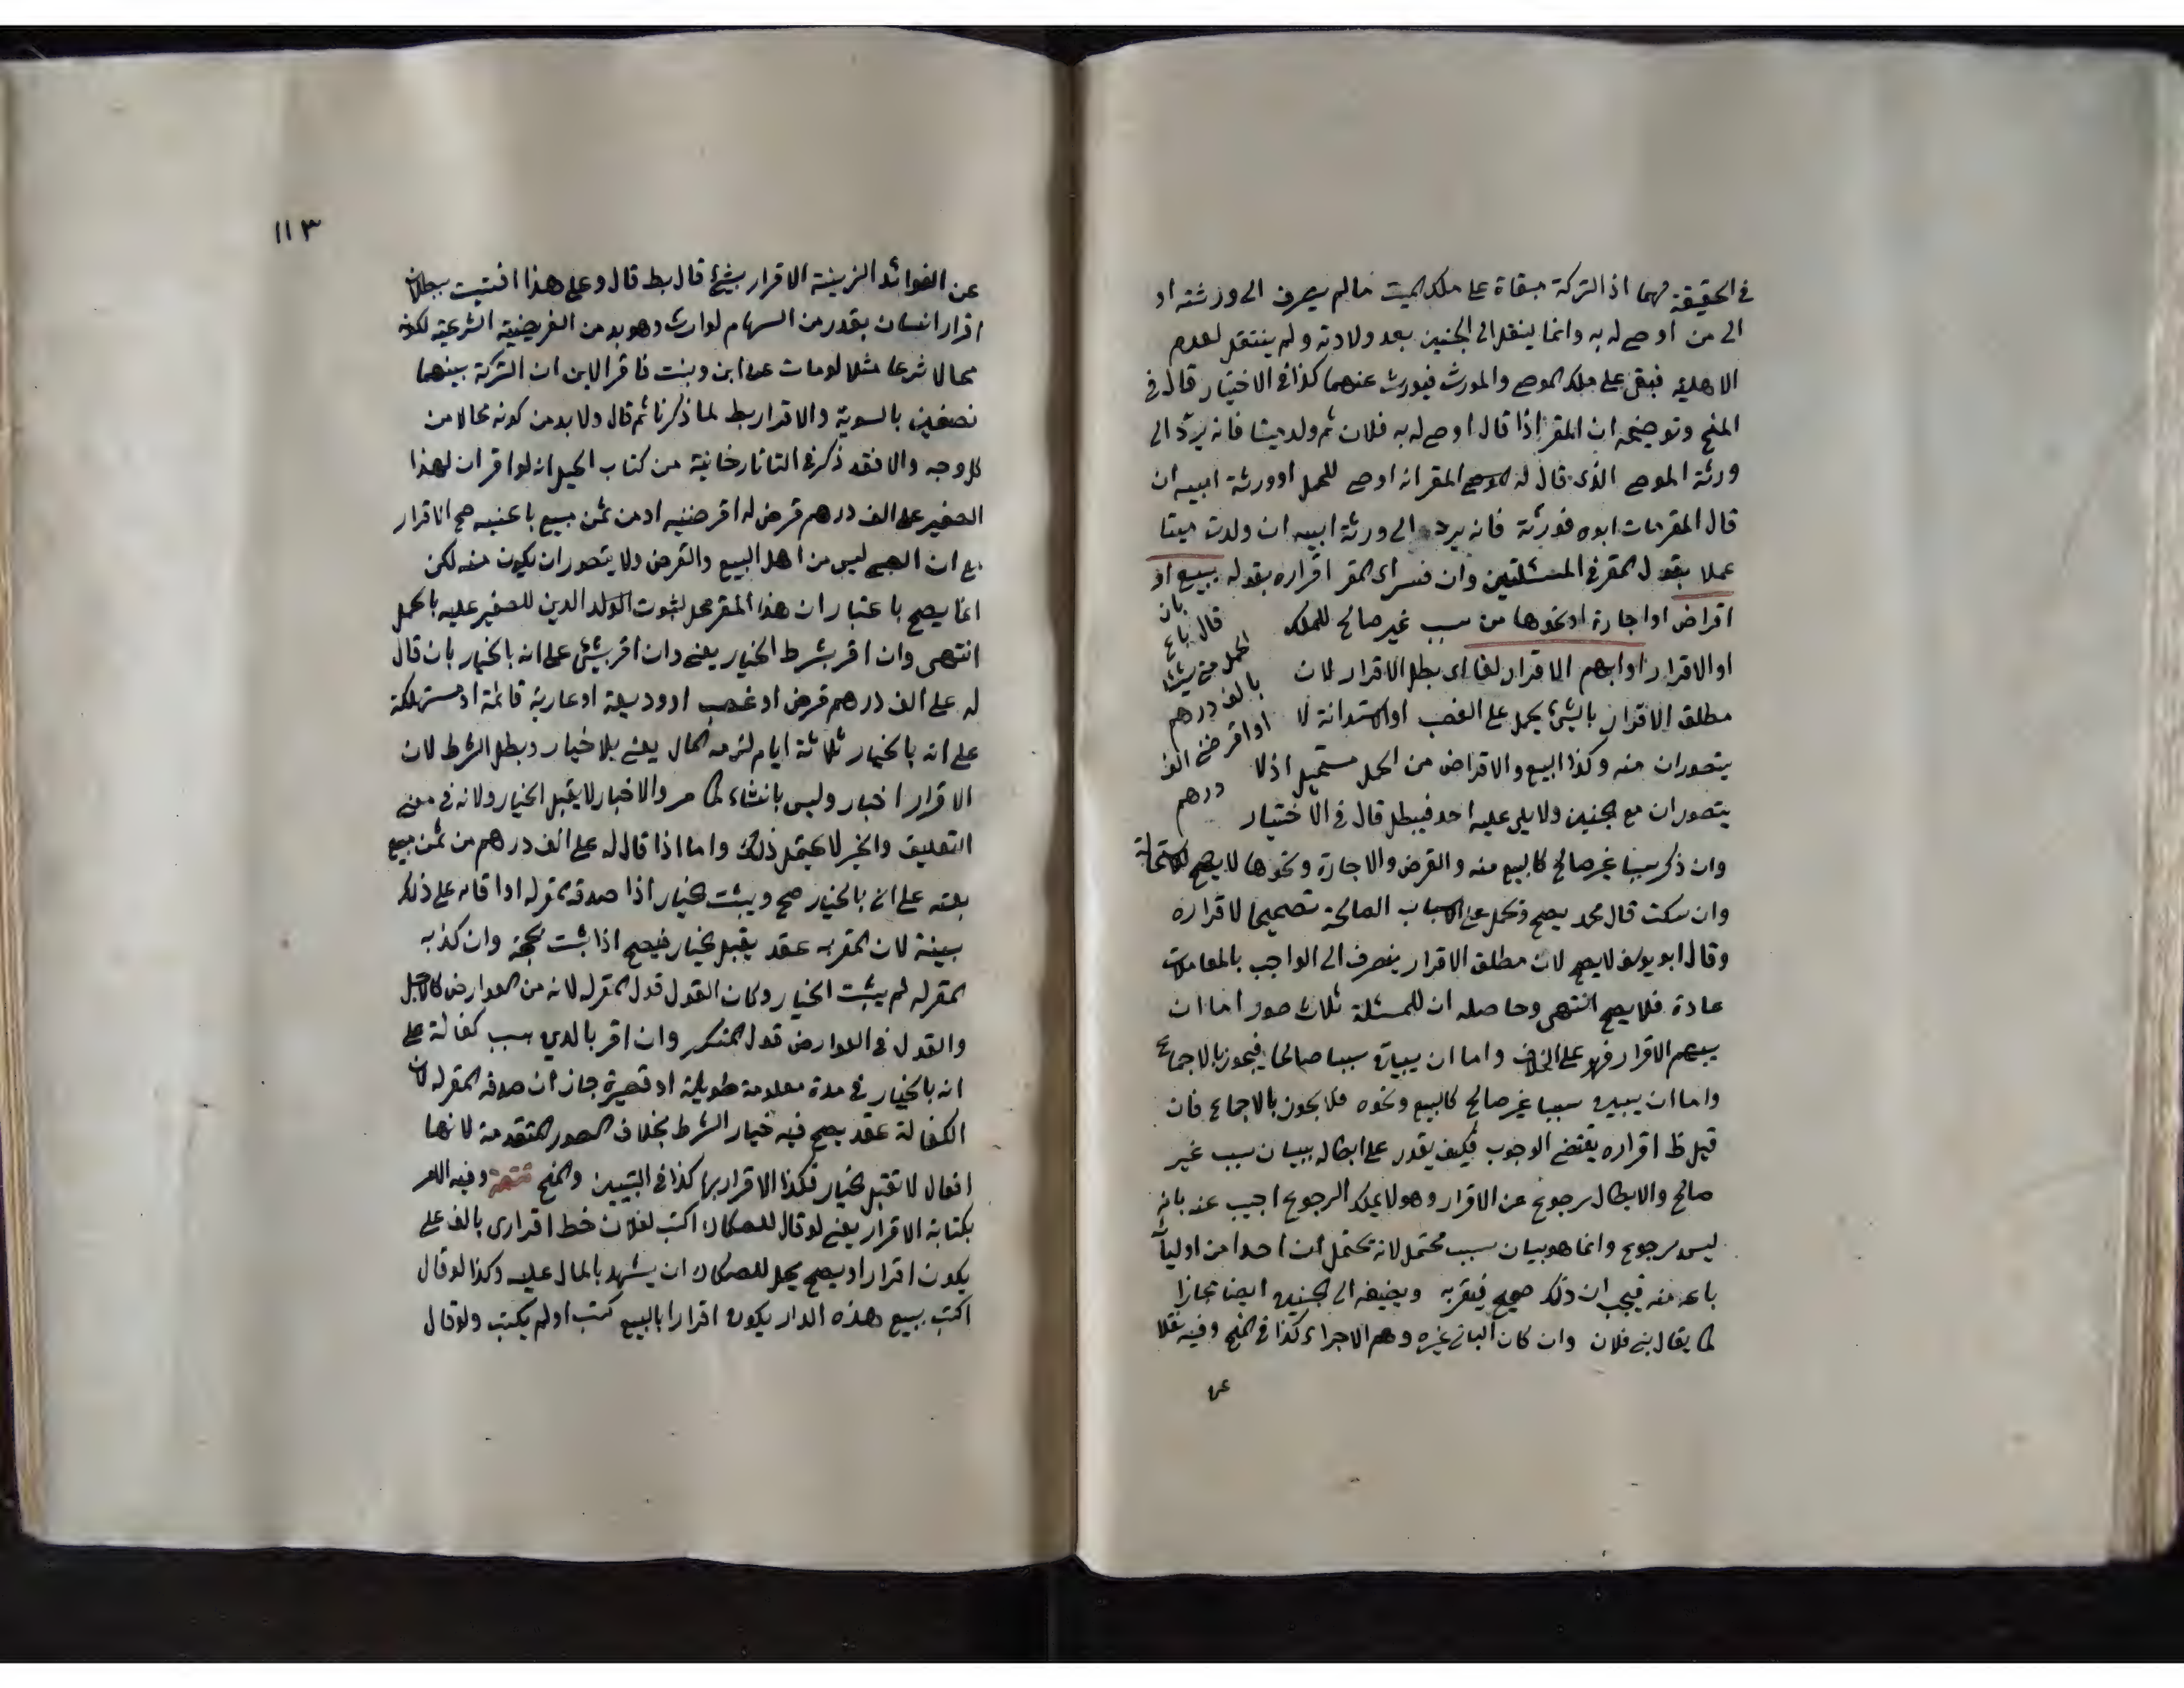 في الحقيقة لهما اذ التركة مبقاة على ملك الميت مالم يصرف الى ورثته او
الى من اوصى له به وانما ينقل الى الجنين بعد ولادته ولم ينتقل لعدم
الاهلية فبقى على ملك الموصى والمورث فيورث عنهما كذا في الاختيار قال في
المنح وتوضيحه ان المقر اذا قال اوصى له به فلان ثم ولد ميتا فانه يرد الى
ورثة الموصى الذي قال له المقر انه اوصى للحمل او ورثة ابيه ان
قال المقر مات ابوه فورثه فانه يرد الى ورثة ابيه ان ولدت ميتا
عملا بقول المقر في المسئلتين وان فسر اى المقر اقراره بقوله ببيع او
اقراض او اجارة او نحوها من سبب غير صالح للملك
بان قال باع
الحمل مني شيئا
بالف درهم
او اقرضني الف
درهم
او الاقرار او ابهم الاقرار لغا اى بطل الاقرار لان
مطلق الاقرار بالشئ يحمل على الغصب او الاستدانة لا
يتصوران منه وكذا البيع والاقراض من الحمل مستحيل اذ لا
يتصوران مع الجنين ولا يلى عليه احد فيبطل قال في الاختيار
وان ذكر سببا غير صالح كالبيع منه والقرض والاجارة ونحوها لا يصح لاستحالته
وان سكت قال محمد يصح ويحمل على الاسباب الصالحة تصحيحا لاقراره
وقال ابو يوسف لا يصح لان مطلق الاقرار ينصرف الى الواجب بالمعاملات
عادة فلا يصح انتهى وحاصله ان للمسئلة ثلاث صور اما ان
يبهم الاقرار فهو على الخلاف واما ان يبين سببا صالحا فيجوز بالاجماع
واما ان يبين سببا غير صالح كالبيع ونحوه فلا يجوز بالاجماع فان
قيل ظ اقراره يقتضى الوجوب فكيف يقدر على ابطاله ببيان سبب غير
صالح والابطال رجوع عن الاقرار وهو لا يملك الرجوع اجيب عنه بانه
ليس برجوع وانما هو بيان سبب محتمل لانه يحتمل ان احدا من اوليائه
باعه منه فيحسب ان ذلك صحيح فيقر به ويضيفه الى الجنين ايضا مجازا
كما يقال بنى فلان وان كان البانى غيره وهم الاجراء كذا في المنح وفيه نقلا
عن
١١٣
عن الفوائد الزينية الاقرار بشئ قال بط قال وعلى هذا افتيت ببطلان
اقرار انسان بقدر من السهام لوارث وهو يد من الفريضة الشرعية لكونه
محالا شرعا مثلا لو مات عن ابن وبنت فاقر الابن ان التركة بينهما
نصفين بالسوية والاقرار بط لما ذكرنا ثم قال ولا بد من كونه محالا من
كل وجه والا فقد ذكر في التاتارخانية من كتاب الحيل انه لو اقر ان لهذا
الصغير على الف درهم قرض له اقرضنيه او من ثمن مبيع باعنيه صح الاقرار
مع ان الصبى ليس من اهل البيع والقرض ولا يتصور ان يكون منه لكن
انما يصح باعتبار ان هذا المقر محل لثبوت الدين للصغير عليه بالحمل
انتهى وان اقر بشرط الخيار يعنى وان اقر بشئ على انه بالخيار بان قال
له على الف درهم قرض او غصب او وديعة او عارية قائمة او مستهلكة
على انه بالخيار ثلاثة ايام لزمه المال يعنى بلا خيار وبطل الشرط لان
الاقرار اخبار وليس بانشاء كما مر والاخبار لا يقبل الخيار ولانه في معنى
التعليق والخبر لا يحتمل ذلك واما اذا قال له على الف درهم من ثمن مبيع
بعته على انه بالخيار صح ويثبت الخيار اذا صدقه المقر له او اقام على ذلك
بينة لان المقر به عقد يقبل الخيار فيصح اذا ثبت بحجة وان كذبه
المقر له لم يثبت الخيار وكان القول قول المقر له لانه من العوارض كالاجل
والقول في العوارض قول المنكر وان اقر بالدين بسبب كفالة على
انه بالخيار في مدة معلومة طويلة او قصيرة جاز ان صدقه المقر له لان
الكفالة عقد يصح فيه خيار الشرط بخلاف الصور المتقدمة لانها
افعال لا تقبل الخيار فكذا الاقرار بها كذا في التبيين والمنح تتمة وفيه الامر
بكتابة الاقرار يعنى لو قال للصكاك اكتب لفلان خط اقرارى بالف على
يكون اقرارا ويصح يحل للصكاك ان يشهد بالمال عليه وكذا لو قال
اكتب ببيع هذه الدار يكون اقرارا بالبيع كتب او لم يكتب ولو قال